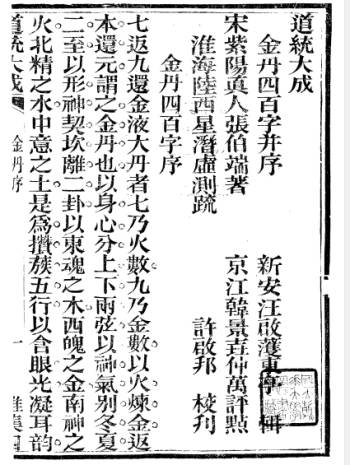 道統大成
金丹四百字并序
新安汪啟濩東亭 輯
宋紫陽眞人張伯端著
京江韓景垚仲萬評點
淮海陸西星潛虛測疏
許啟邦 校刊
金丹四百字序
七返九還金液大丹者七乃火數九乃金數以火煉金返
本還元謂之金丹也以身心分上下兩弦以神氣別冬夏
二至以形神契坎離二卦以東魂之木西魄之金南神之
火北精之水中意之土是為攢簇五行以含眼光凝耳韻
道統大成 金丹序 一